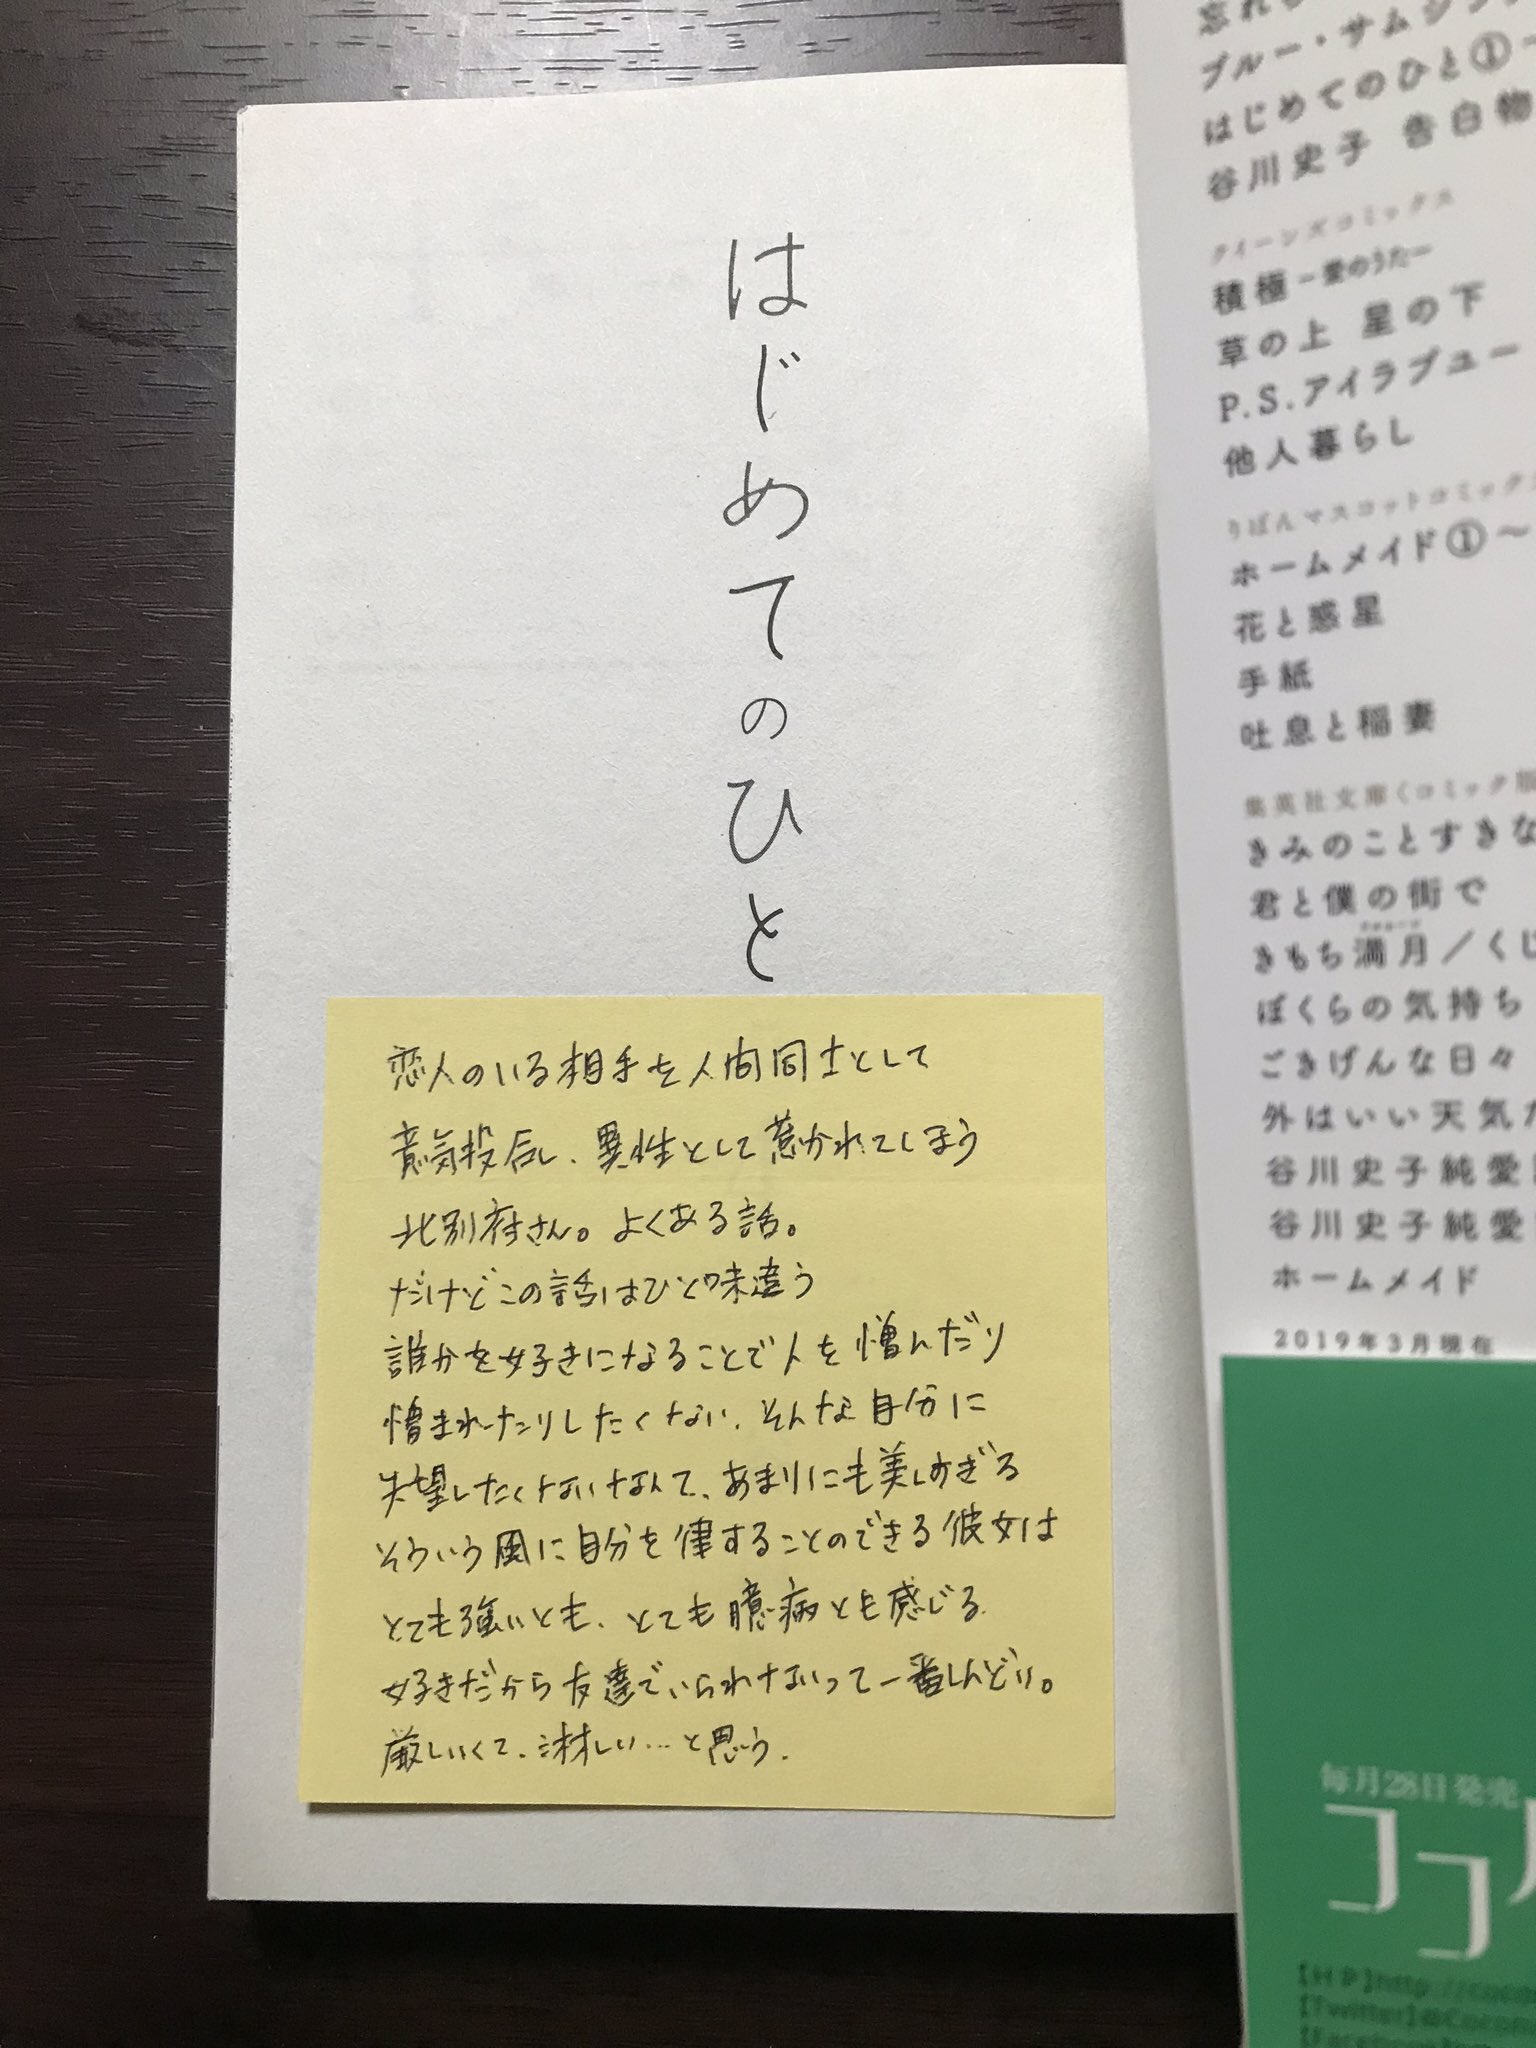 はじめてのひと
恋人のいる相手を人間同士として
意気投合し、異性として惹かれてしまう
北別府さん。よくある話。
だけどこの話はひと味違う
誰かを好きになることで人を憎んだり
憎まれたりしたくない、そんな自分に
失望したくないなんて、あまりにも美しすぎる
そういう風に自分を律することのできる彼女は
とても強いとも、とても臆病とも感じる
好きだから友達でいられないって一番しんどい。
厳しくて、淋しい…と思う。
忘れ
ブルー・サムシング
はじめてのひと①
谷川史子 告白物
クイーンズコミックス
積極−愛のうた−
草の上 星の下
P.S.アイラブユー
他人暮らし
りぼんマスコットコミックス
ホームメイド①〜
花と惑星
手紙
吐息と稲妻
集英社文庫〈コミック版
きみのことすきな
君と僕の街で
きもち満月／くじ
ぼくらの気持ち
ごきげんな日々
外はいい天気だ
谷川史子純愛
谷川史子純愛
ホームメイド
2019年3月現在
毎月28日発売
ココ
【HP】http://coco
【Twitter】@Cocoha
【Facebook】